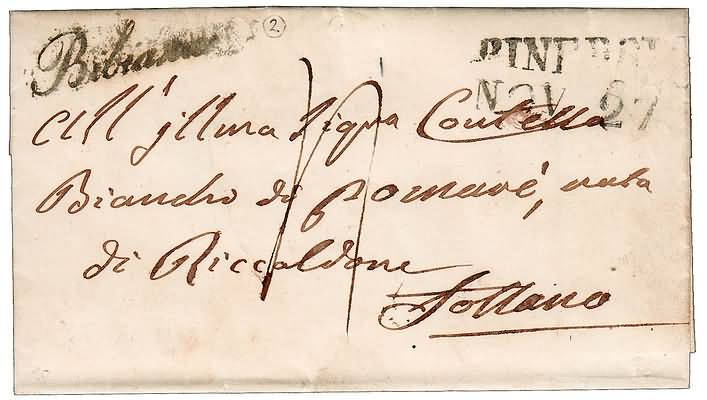 Bibiana
2
PINEROL
NOV 27
All' Jllma Sigra Contessa
Biandrà di Pomaré, nata
di Riccaldone
Fossano